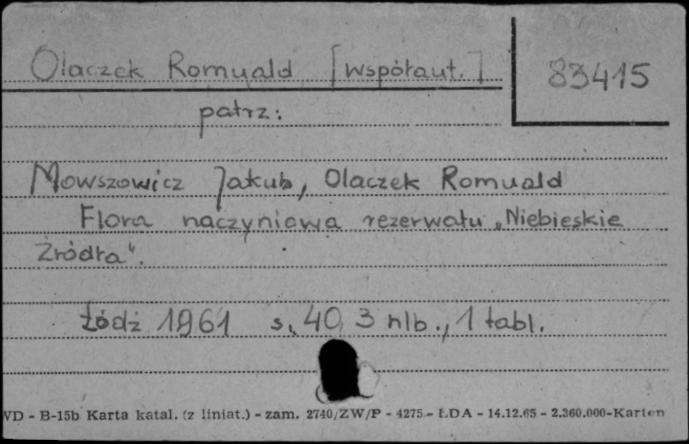 Olaczek Romuald [współaut.]
83415
patrz:
Mowszowicz Jakub, Olaczek Romuald
Flora naczyniowa rezerwatu „Niebieskie
Źródła".
Łódź 1961 s. 40, 3 nlb., 1 tabl.
WD - B-15b Karta katal. (z liniat.) - zam. 2740/ZW/P - 4275 - ŁDA - 14.12.65 - 2.360.000-Karten